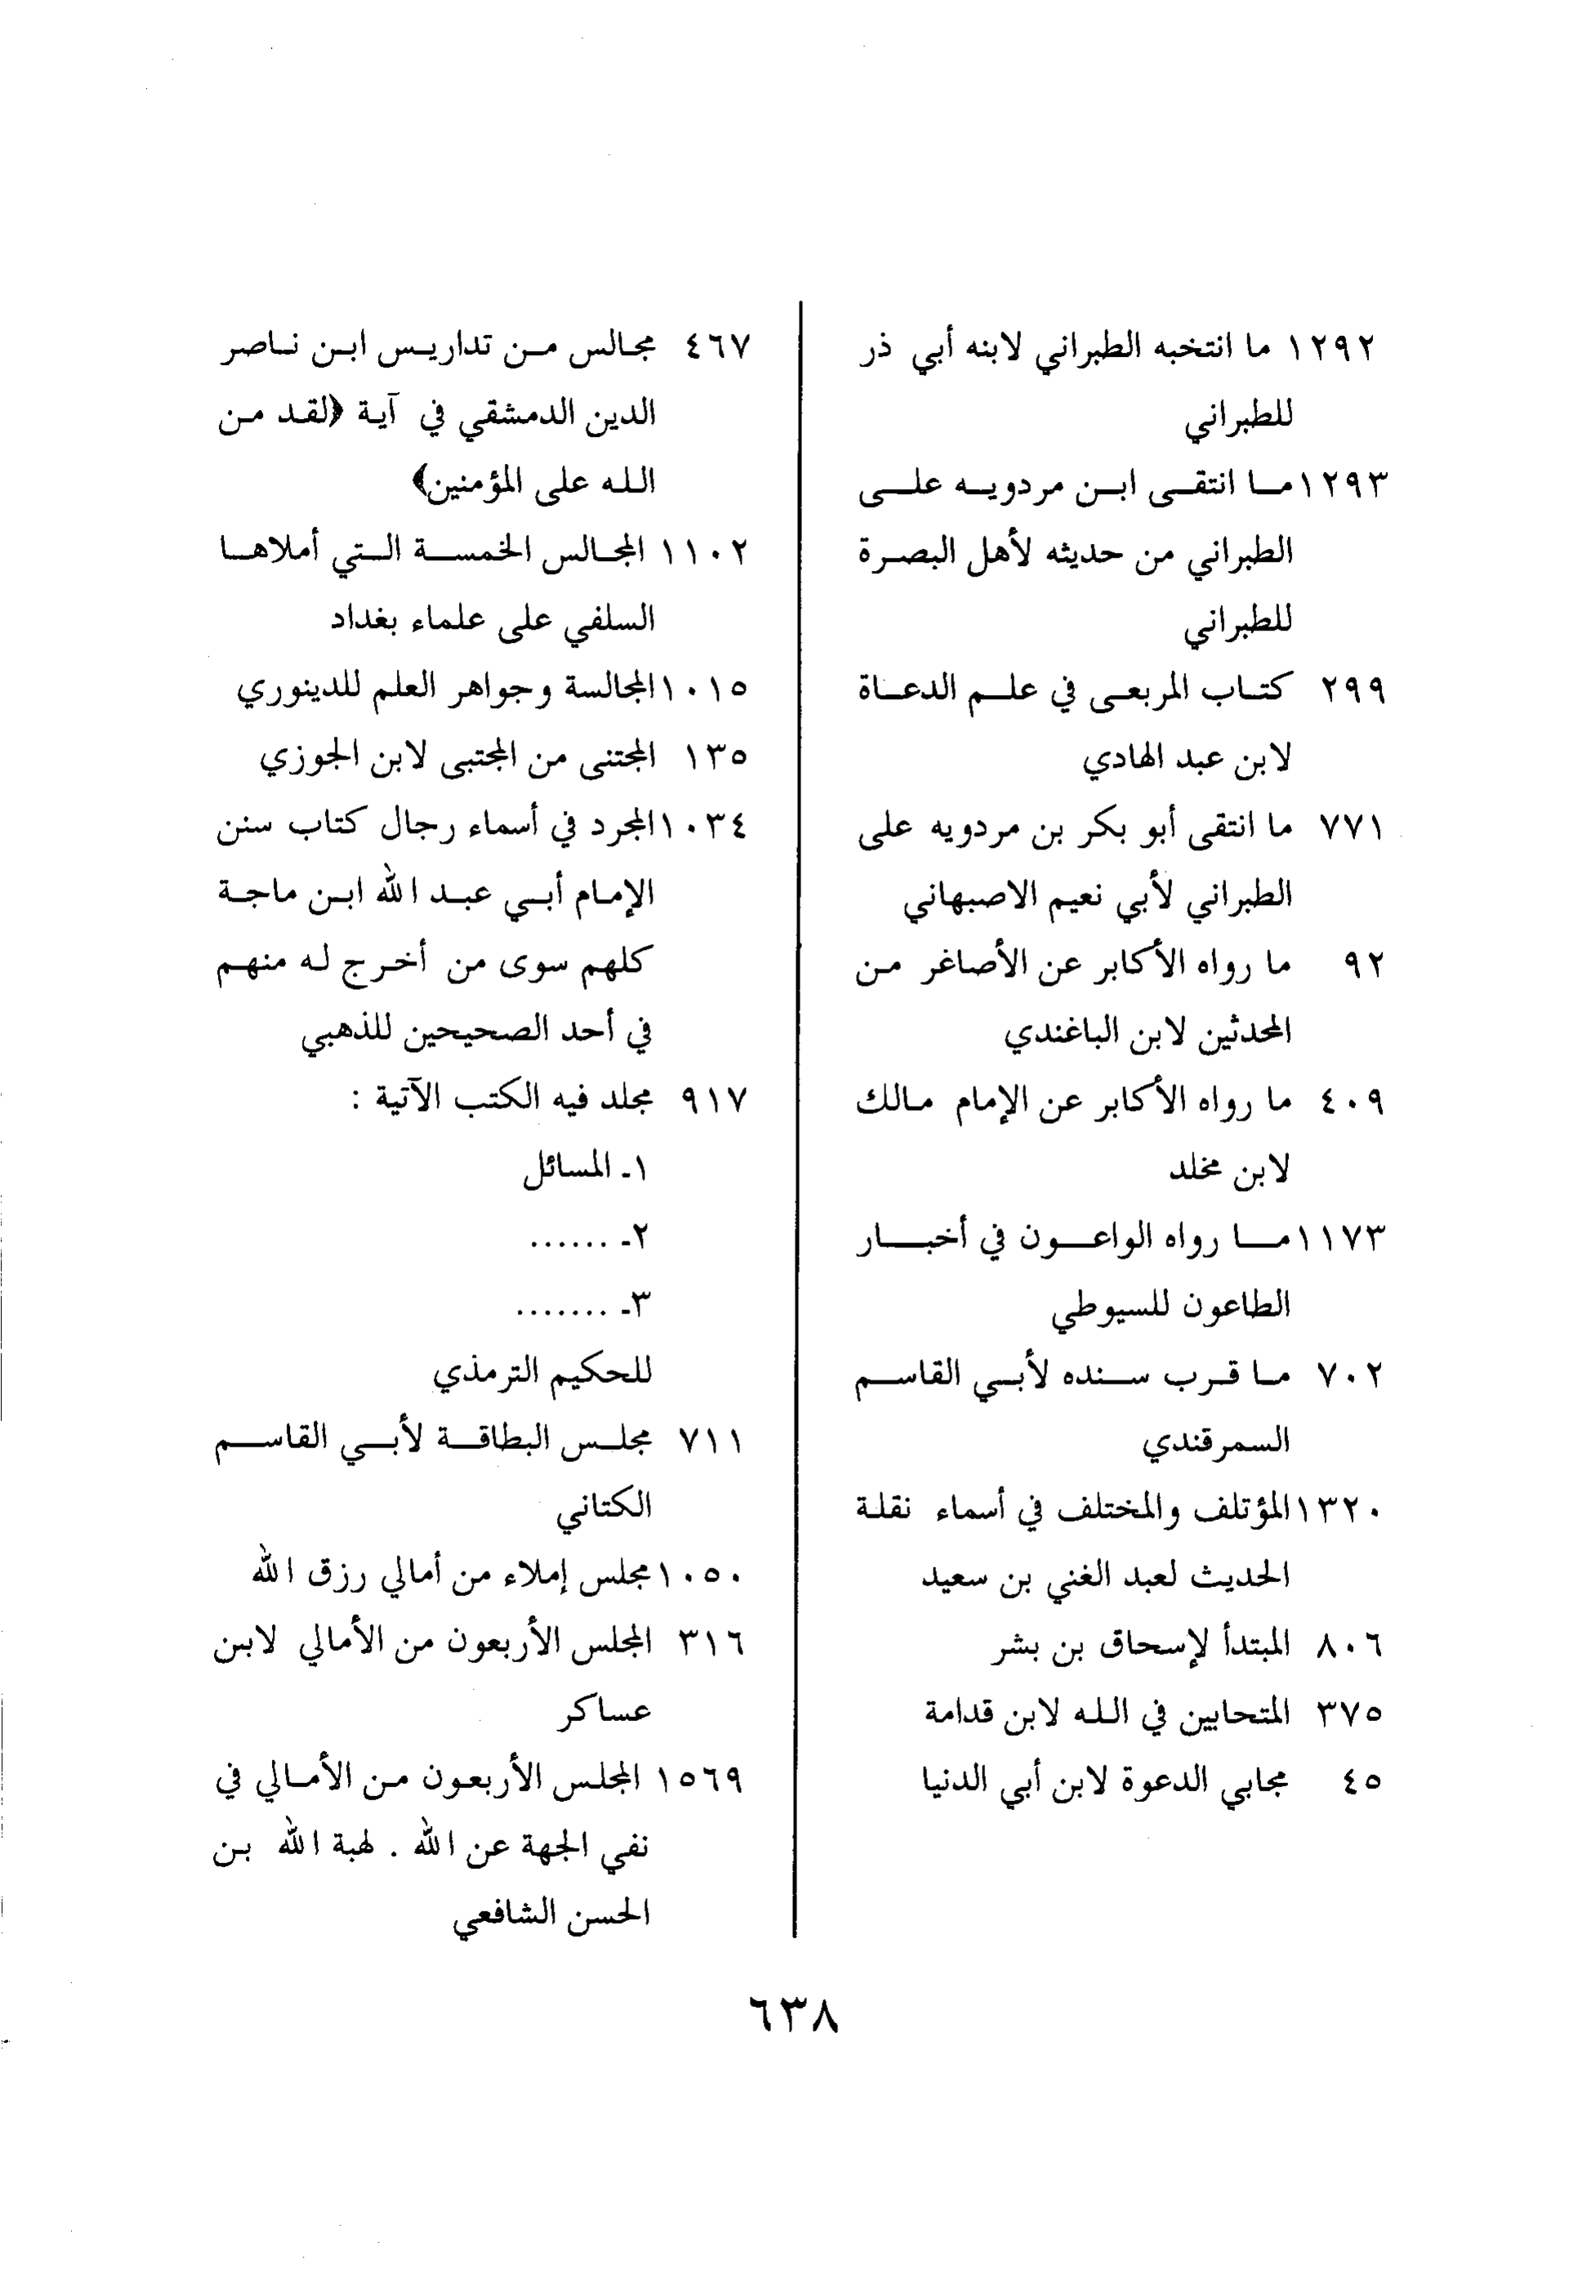 ١٢٩٢ ما انتخبه الطبراني لابنه أبي ذر
للطبراني
١٢٩٣ ما انتقى ابن مردويه على
الطبراني من حديثه لأهل البصرة
للطبراني
٢٩٩ كتاب المربعى في علم الدعاة
لابن عبد الهادي
٧٧١ ما انتقى أبو بكر بن مردويه على
الطبراني لأبي نعيم الاصبهاني
٩٢ ما رواه الأكابر عن الأصاغر من
المحدثين لابن الباغندي
٤٠٩ ما رواه الأكابر عن الإمام مالك
لابن مخلد
١١٧٣ ما رواه الواعون في أخبار
الطاعون للسيوطي
٧٠٢ ما قرب سنده لأبي القاسم
السمرقندي
١٣٢٠ المؤتلف والمختلف في أسماء نقلة
الحديث لعبد الغني بن سعيد
٨٠٦ المبتدأ لإسحاق بن بشر
٣٧٥ المتحابين في الله لابن قدامة
٤٥ مجابي الدعوة لابن أبي الدنيا
٤٦٧ مجالس من تداريس ابن ناصر
الدين الدمشقي في آية ﴿لقد من
الله على المؤمنين﴾
١١٠٢ المجالس الخمسة التي أملاها
السلفي على علماء بغداد
١٠١٥ المجالسة وجواهر العلم للدينوري
١٣٥ المجتنى من المجتبى لابن الجوزي
١٠٣٤ المجرد في أسماء رجال كتاب سنن
الإمام أبي عبد الله ابن ماجة
كلهم سوى من أخرج له منهم
في أحد الصحيحين للذهبي
٩١٧ مجلد فيه الكتب الآتية :
١ـ المسائل
٢ـ ......
٣ـ .......
للحكيم الترمذي
٧١١ مجلس البطاقة لأبي القاسم
الكتاني
١٠٥٠ مجلس إملاء من أمالي رزق الله
٣١٦ المجلس الأربعون من الأمالي لابن
عساكر
١٥٦٩ المجلس الأربعون من الأمالي في
نفي الجهة عن الله . لهبة الله بن
الحسن الشافعي
٦٣٨